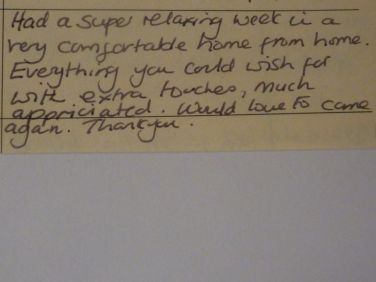 Had a super relaxing week in a
very comfortable home from home.
Everything you could wish for
with extra touches, much
appriciated. Would love to come
again. Thankyou.